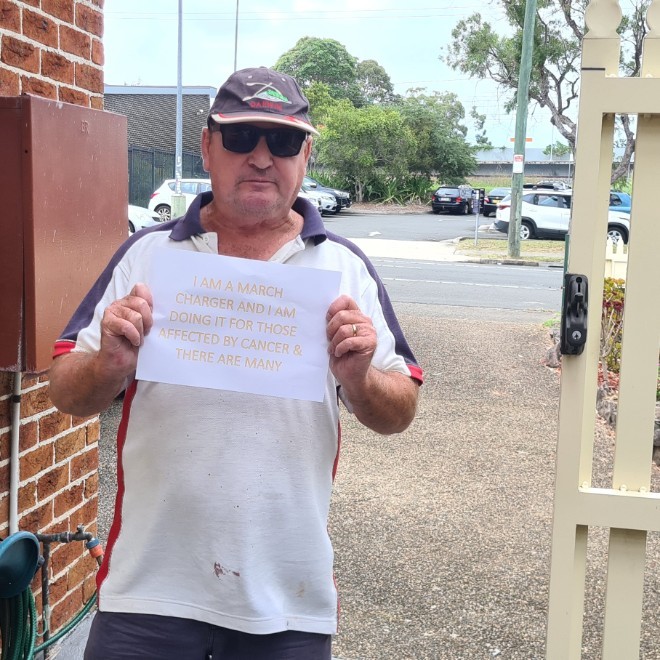 I AM A MARCH
CHARGER AND I AM
DOING IT FOR THOSE
AFFECTED BY CANCER &
THERE ARE MANY